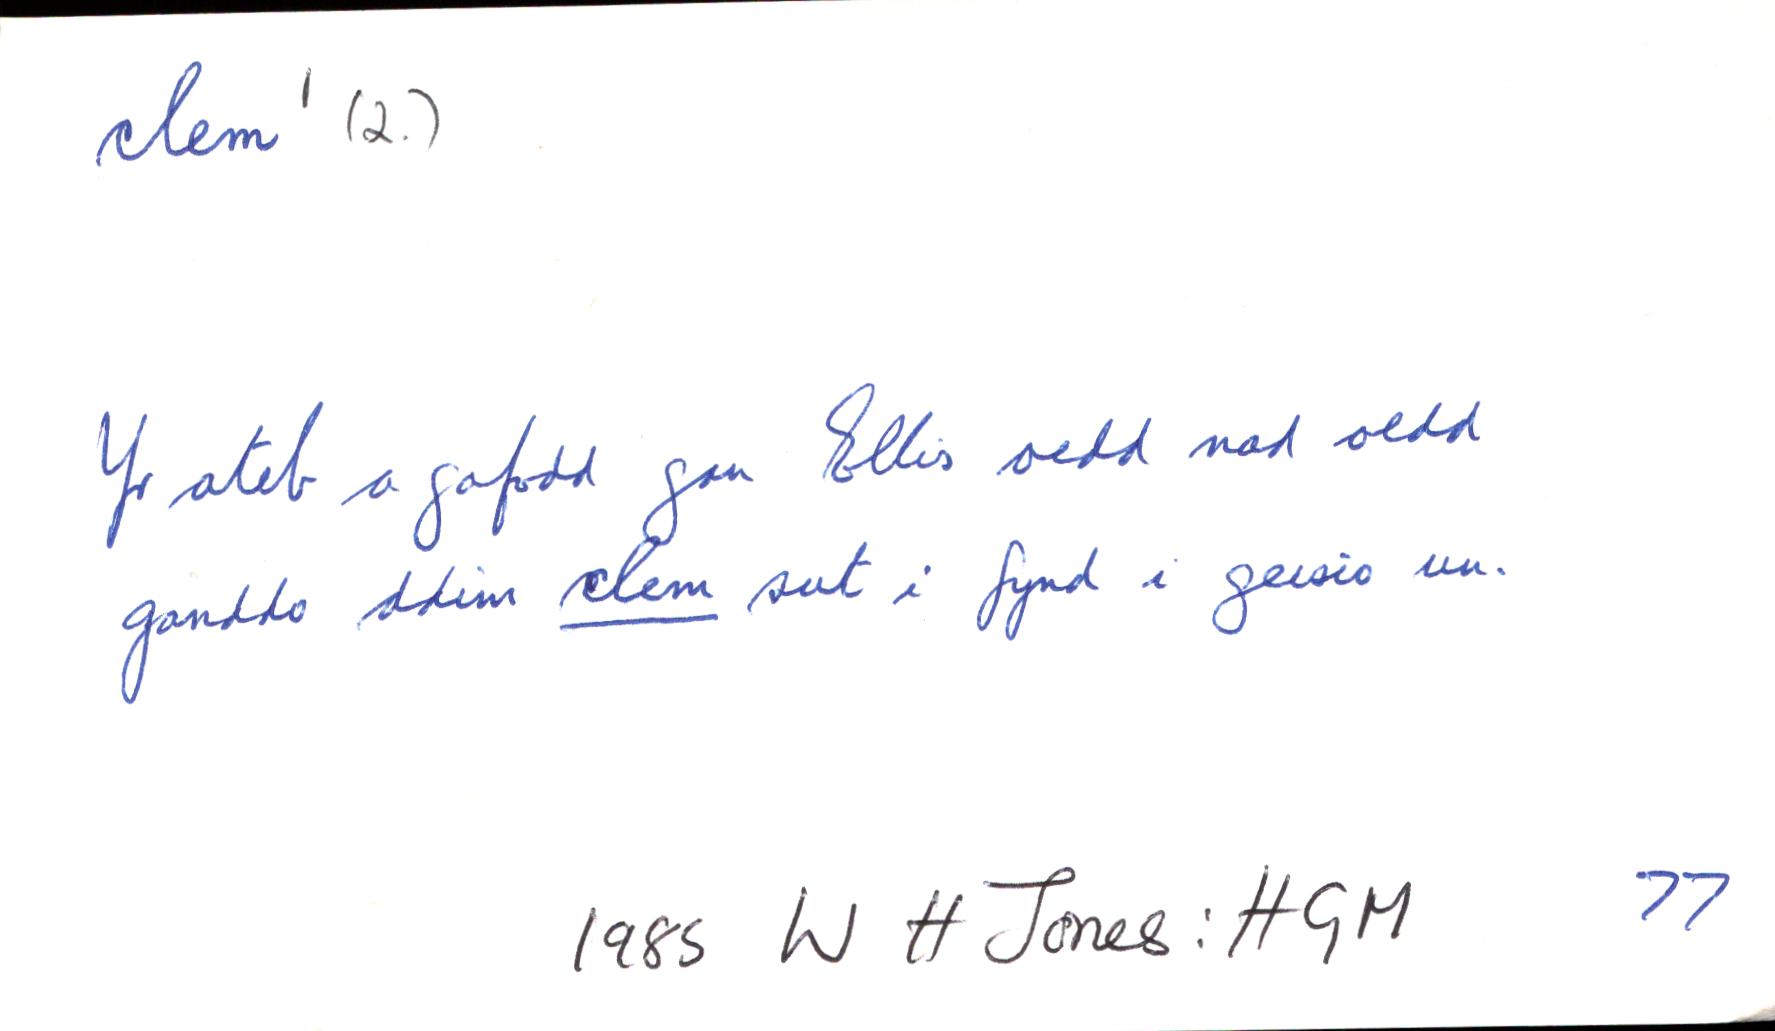 clem¹ (2.)
Yr ateb a gafodd gan Ellis oedd nad oedd
ganddo ddim clem sut i fynd i geisio un.
1985 W H Jones : HGM 77